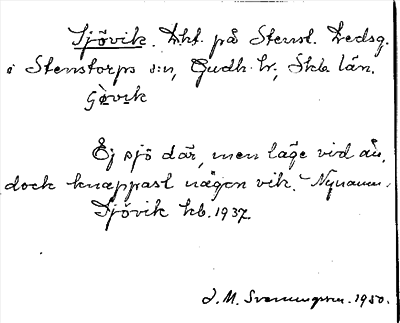 Sjövik. Lht. på Stenst. Ledsg.
i Stenstorps sn, Gudh. hr, Skb. län.
Ej sjö där, men läge vid ån,
dock knappast någon vik. Nynamn.
Sjövik kb. 1937.
J. M. 1950.